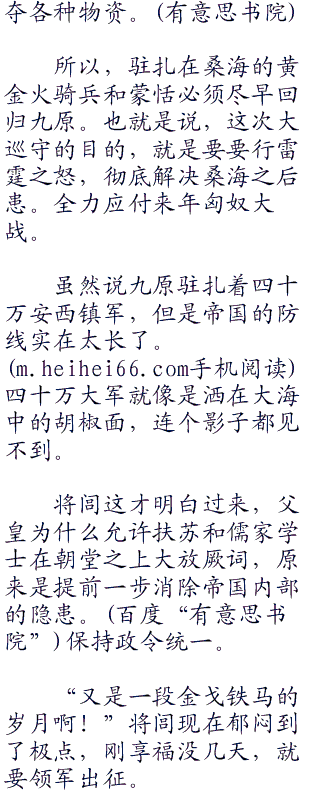 夺各种物资。(有意思书院)
所以，驻扎在桑海的黄
金火骑兵和蒙恬必须尽早回
归九原。也就是说，这次大
巡守的目的，就是要要行雷
霆之怒，彻底解决桑海之后
患。全力应付来年匈奴大
战。
虽然说九原驻扎着四十
万安西镇军，但是帝国的防
线实在太长了。
(m.heihei66.com手机阅读)
四十万大军就像是洒在大海
中的胡椒面，连个影子都见
不到。
将闾这才明白过来，父
皇为什么允许扶苏和儒家学
士在朝堂之上大放厥词，原
来是提前一步消除帝国内部
的隐患。(百度“有意思书
院”)保持政令统一。
“又是一段金戈铁马的
岁月啊！”将闾现在郁闷到
了极点，刚享福没几天，就
要领军出征。